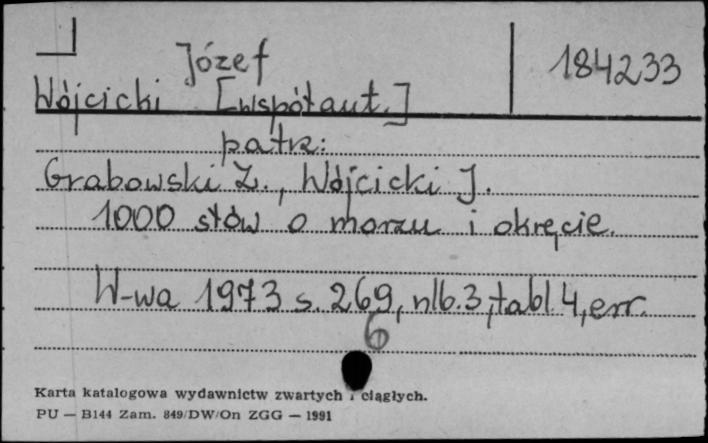 Józef
184233
Wójcicki [współaut.]
patrz:
Grabowski Z., Wójcicki J.
1000 słów o morzu i okręcie.
W-wa 1973 s. 269, nlb. 3, tabl. 4, err.
6
Karta katalogowa wydawnictw zwartych i ciągłych.
PU — B144 Zam. 849/DW/On ZGG — 1991